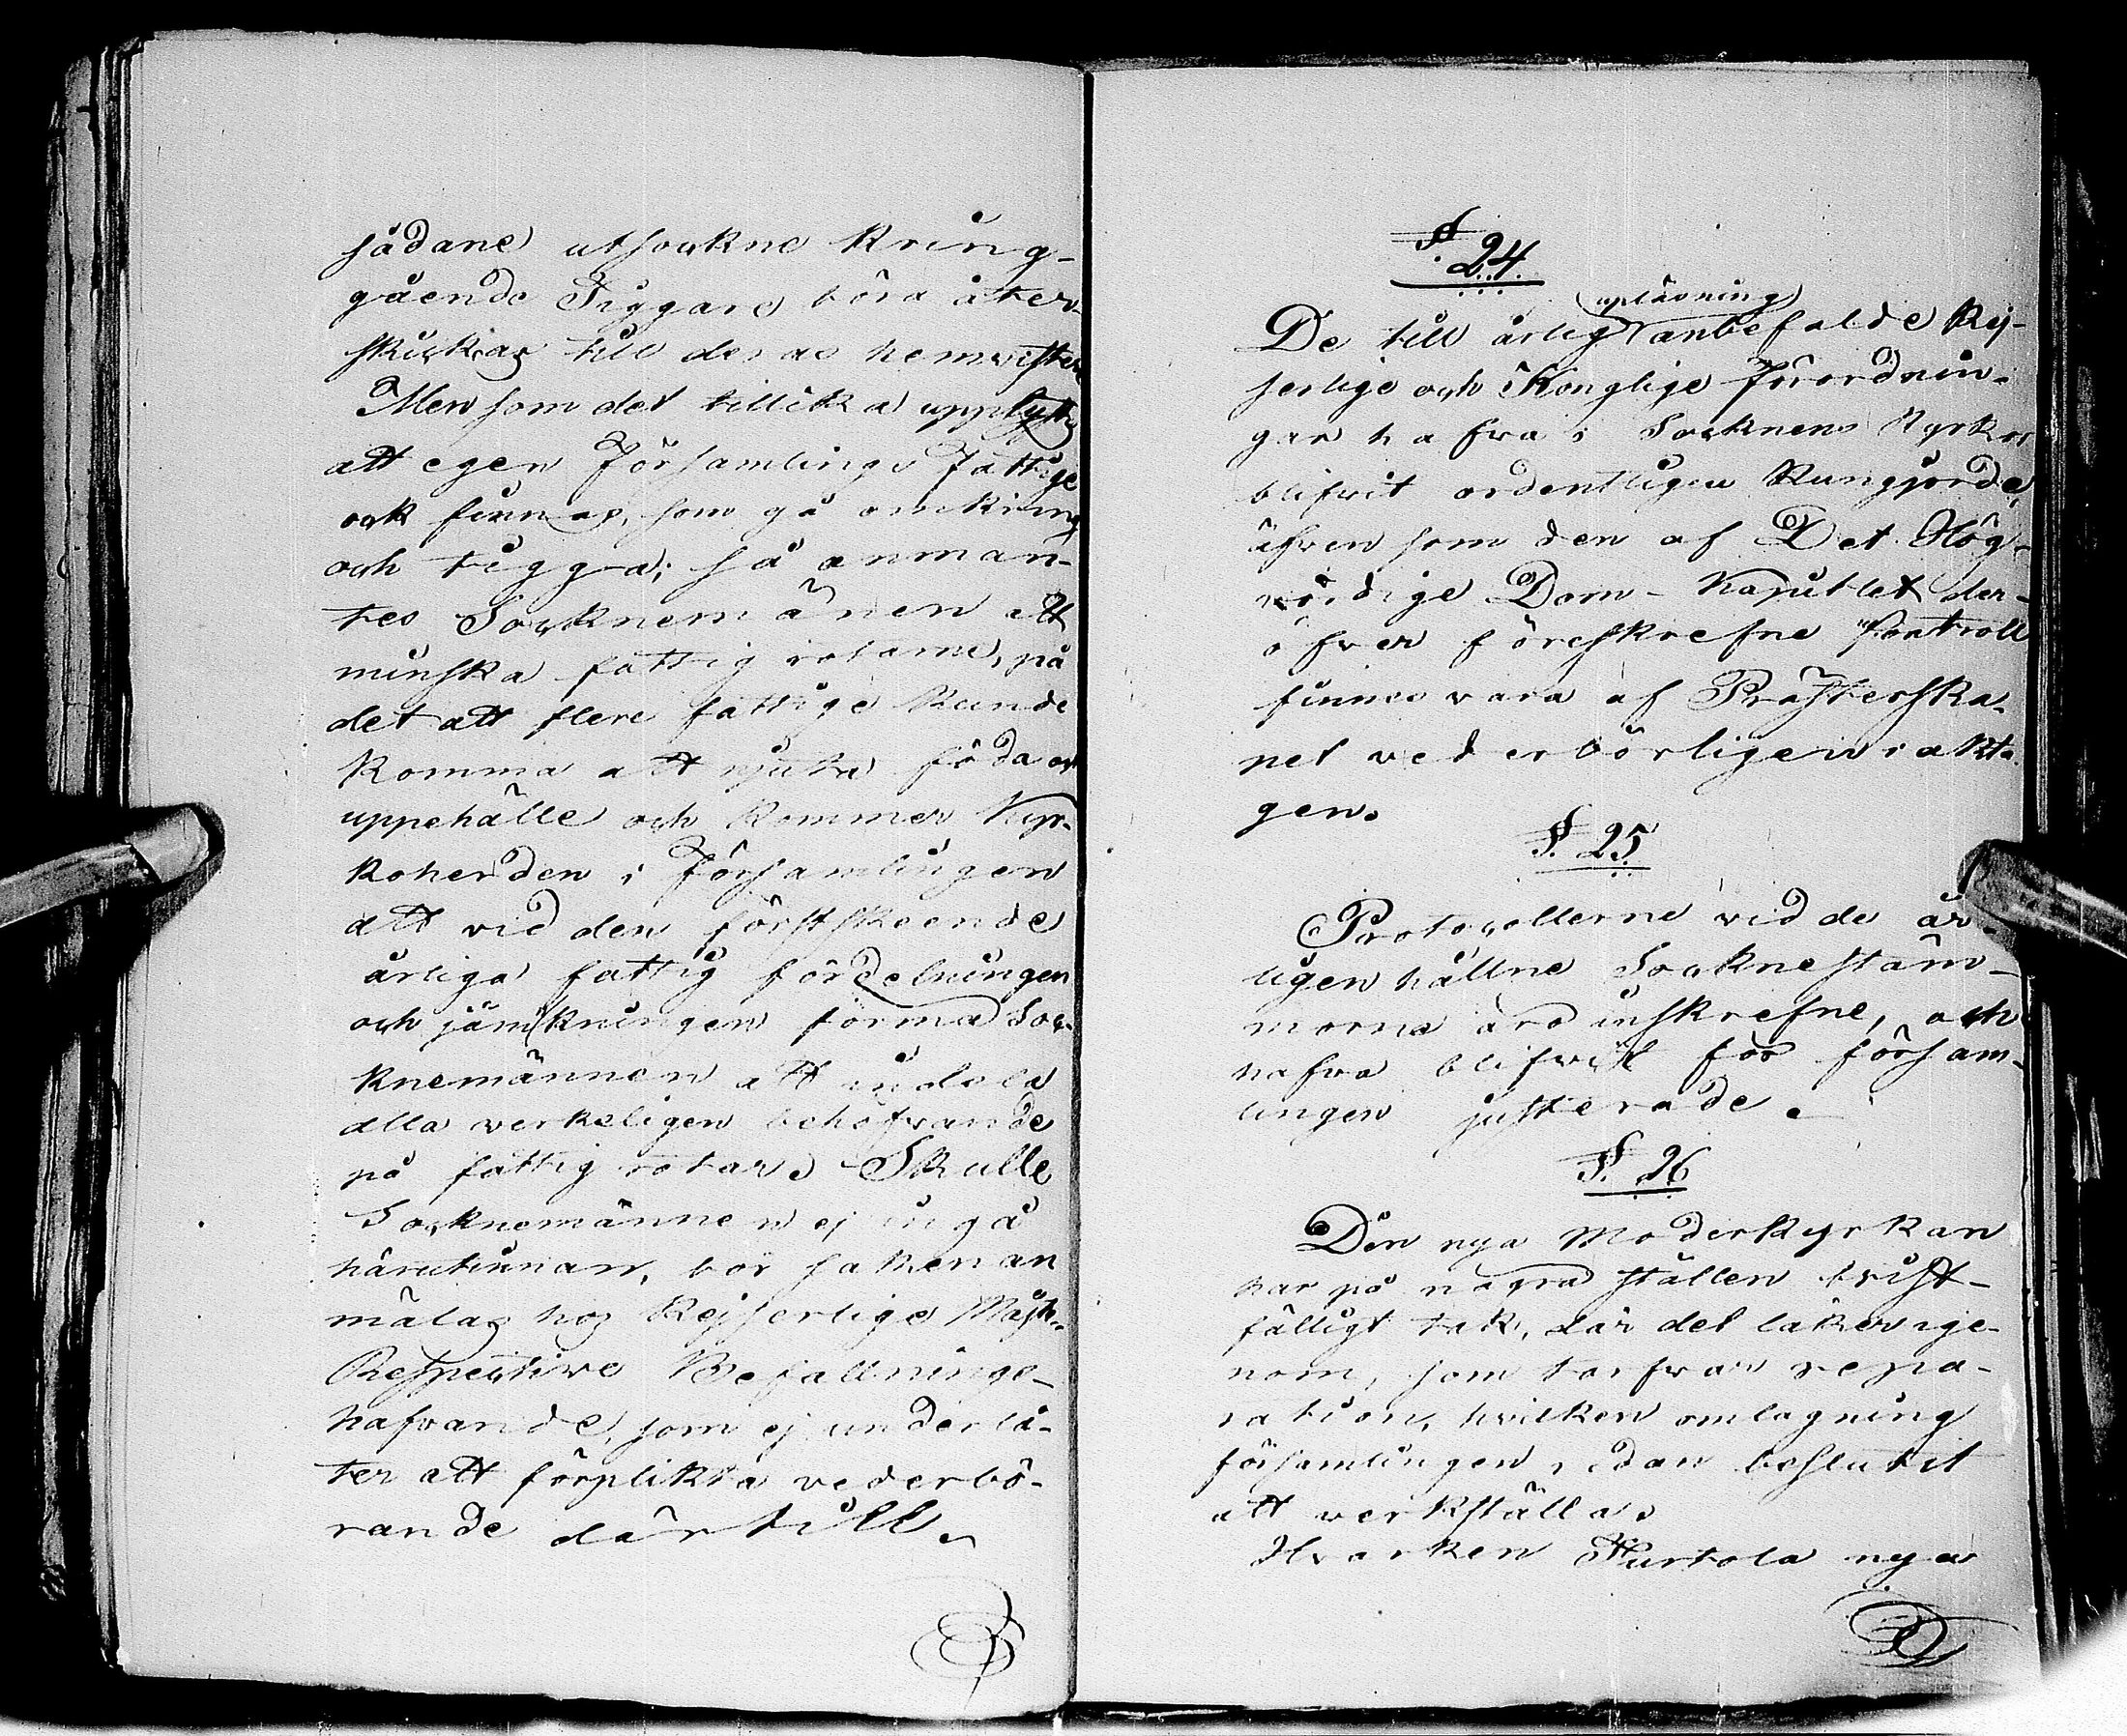 sådane utsockne kring-
gående Tiggare böra åter-
skickas till deras hemvister
Men som det tillika upplystes
att egen Församlings Fattige
ock finnas, som gå omkring
och tigga; så anman-
tes Socknemännen att
minska fattig rotarne, på
det att flere fattige kunde
komma att njuta föda och
uppehälle och kommer Kyr-
koherden i Församlingen
att vid den förstskeende
årliga fattig fördelningen
och jämkningen förmå Soc-
knemännen att indela
alla verkeligen behöfvande
på fattig rotar. Skulle
Socknemännen ej ingå
härutinnan, bör saken an
mälas hos Kejserlige Majt:s
Respective Befallnings-
hafvande, som ej underlå-
ter att förplikta vederbö-
rande därtill.
§. 24.
upläsning
De till årlig anbefalde Kej-
serlige och Konglige Förordnin-
gar hafva i Socknens Kyrkor
blifvit ordentligen Kungjorde,
äfven som den af Det Hög-
värdige Dom-Kapitlet der-
öfver föreskrefne Controll
finnes vara af Prästerska-
pet vederbörligen iakta-
gen.
§. 25
Protocollerne vid de år-
ligen hållne Socknestäm-
morna äro inskrefne, och
hafva blifvit för försam-
lingen justerade.
§. 26
Den nya Moderkyrkan
har på några ställen brist-
fälligt tak, där det läker ige-
nom, som tarfvar repa-
ration, hvilken omlagning
församlingen redan beslutit
att verkställa.
Hvarken Kurtola nya